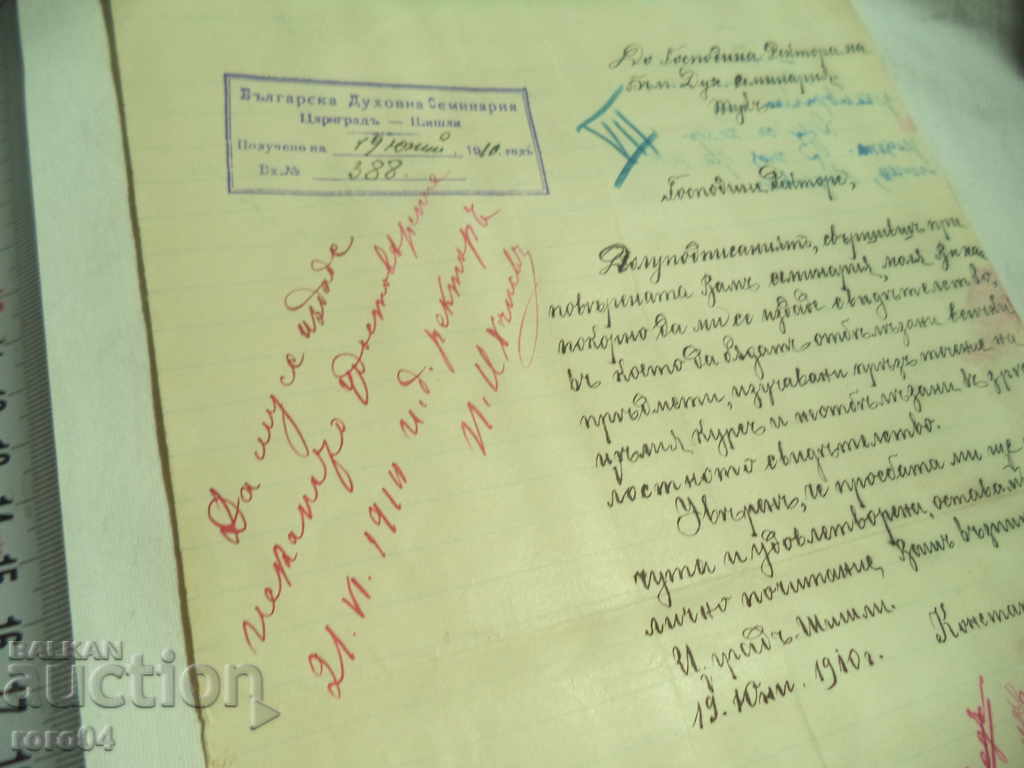 Българска Духовна Семинария
Цариградъ — Шишли
Получено на 19 Юний 1910 годъ
Вх. № 388.
До Господина Ректора на
Бълг. Дух. семинария
Тукъ
VII
Господине Ректоре,
Долуподписаниятъ, свършивъ при
повѣрената Вамъ семинария, моля Ви най
покорно да ми се издаде свидѣтелство,
въ което да бѫдатъ отбѣлѣзани всички
прѣдмети, изучавани прѣзъ течение на
цѣлия курсъ и
лостното свидѣтелство.
Увѣренъ, че просбата ми ще
чута и удовлетворена, оставамъ
лично почитание, Вашъ
Ц. градъ Шишли.
19. Юни. 1910 г.
Конста
Да му се издаде
исканото удостовѣрение
21. VI. 1910 и. д. ректоръ
BALKAN
auction
roro04
15
16
17